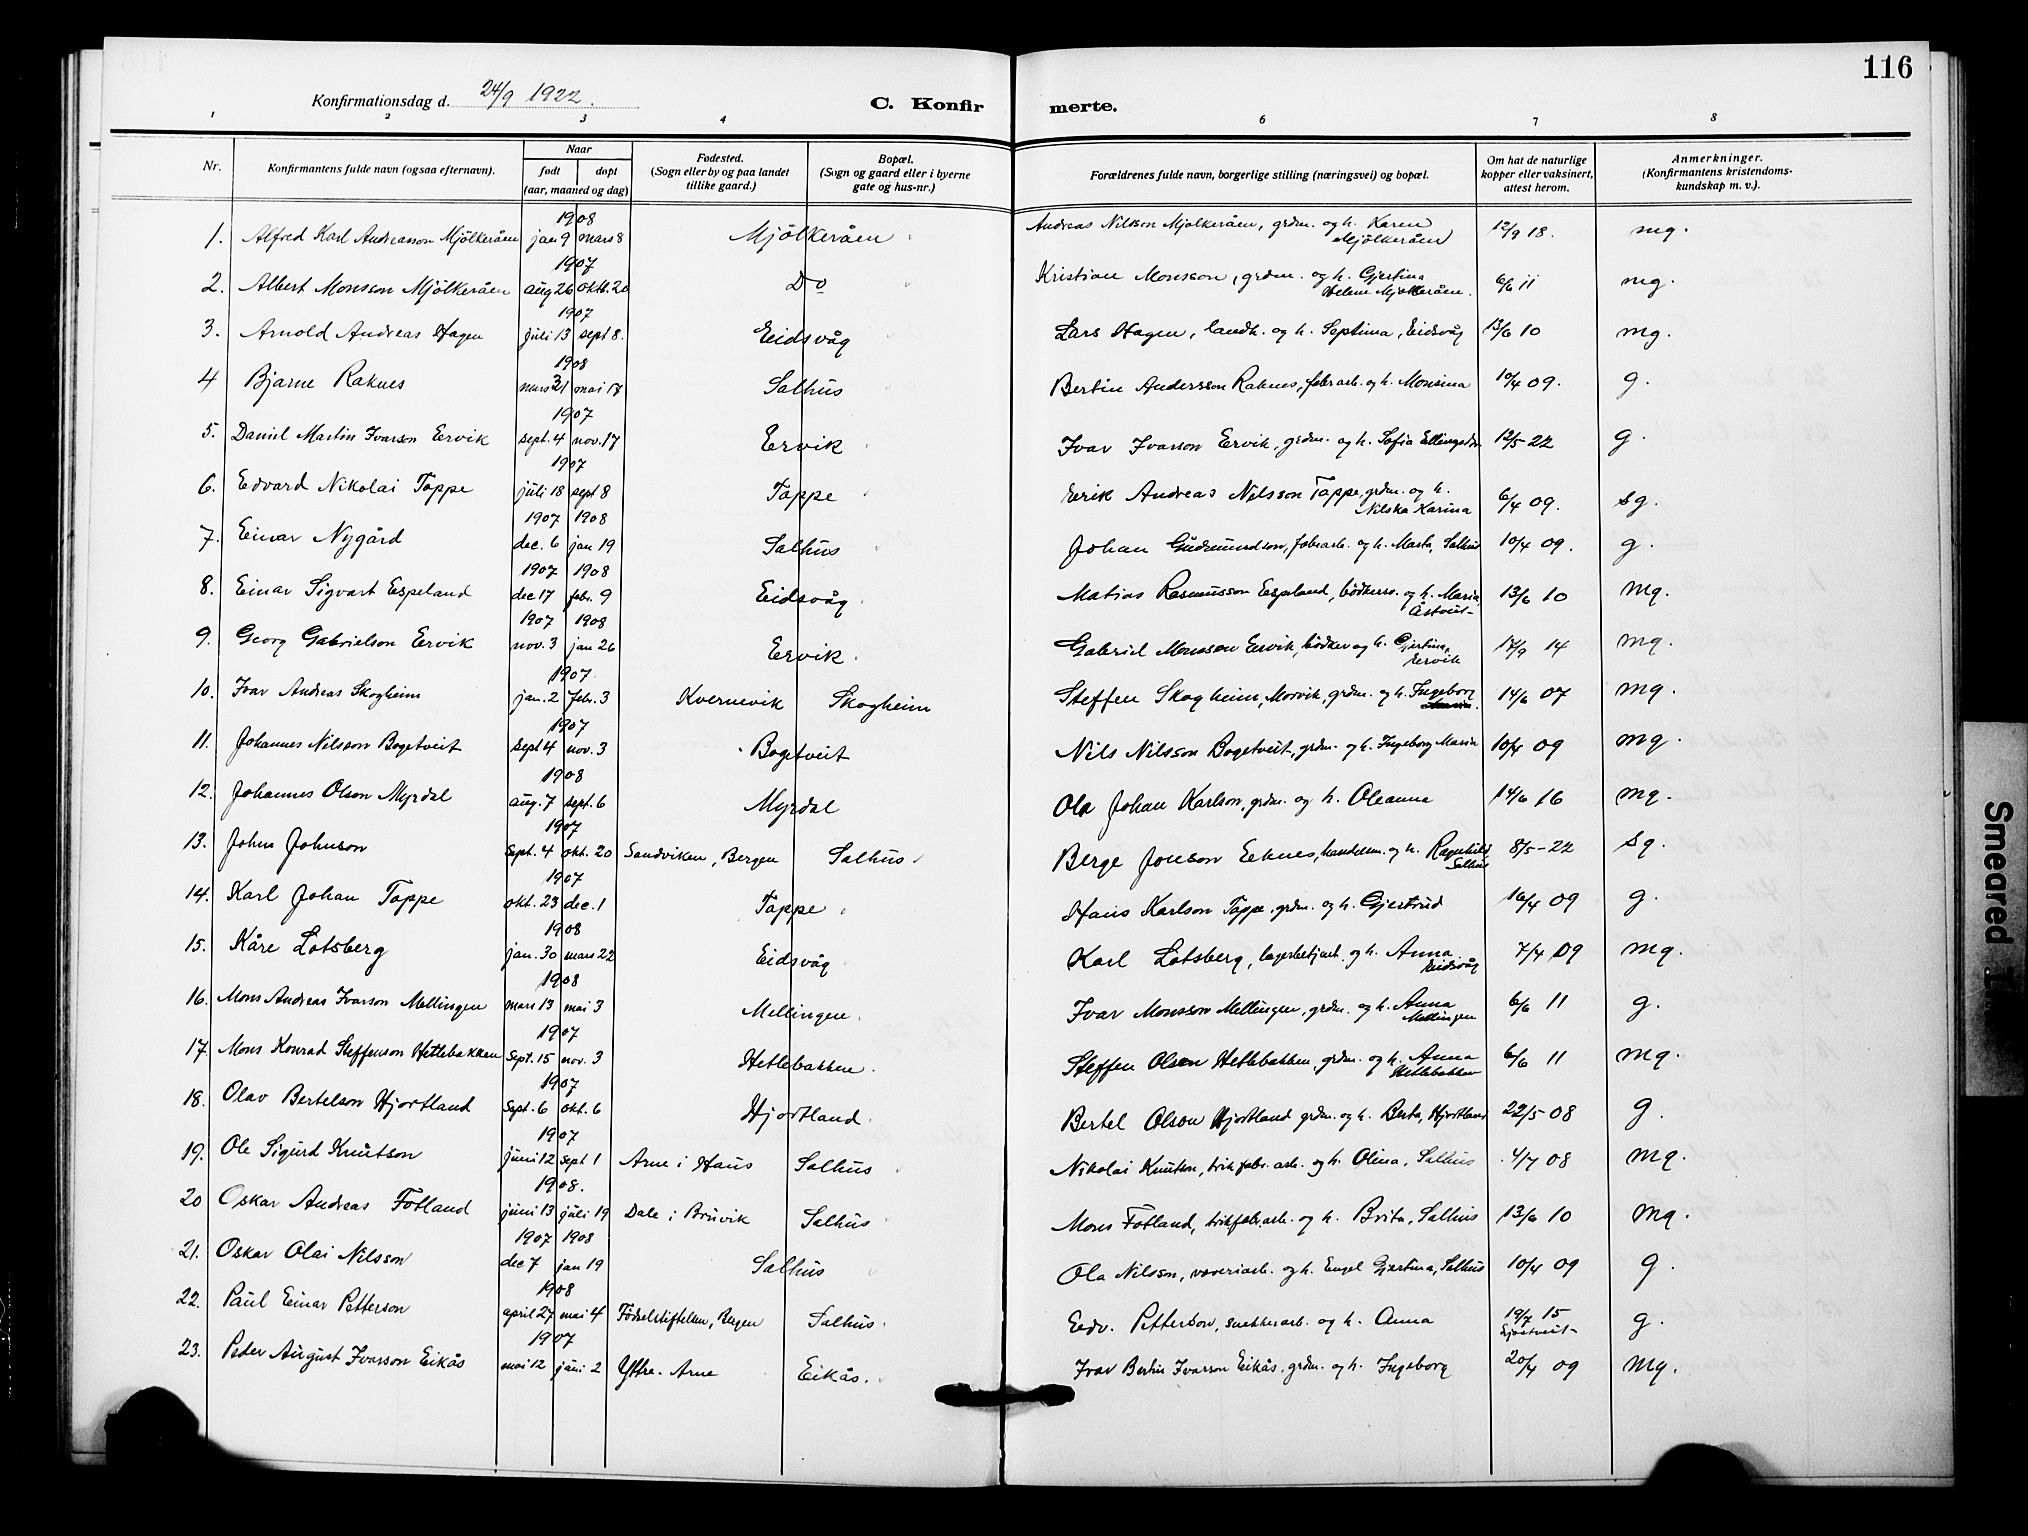 116
Konfirmationsdag d. 24/9 1922.
C. Konfirmerte.
1 2 3 4 6 7 8
Nr. | Konfirmantens fulde navn (ogsaa efternavn). | Naar født døpt (aar, maaned og dag) | Fødested. (Sogn eller by og paa landet tillike gaard.) | Bopæl. (Sogn og gaard eller i byerne gate og hus-nr.) | Forældrenes fulde navn, borgerlige stilling (næringsvei) og bopæl. | Om hat de naturlige kopper eller vaksinert, attest herom. | Anmerkninger. (Konfirmantens kristendomskundskap m. v.).
1. Alfred Karl Andreasson Mjölkeråen 1908 jan 9 mars 8 Mjölkeråen Andreas Nilsson Mjölkeråen, grdm. og h. Karen Mjölkeråen 12/9 18. mg.
2. Albert Monsson Mjölkeråen 1907 aug 26 oktb. 20 Do Kristian Monsson, grdm. og h. Gjertina Helene Mjölkeråen. 6/6 11 mg.
3. Arnold Andreas Hagen 1907 juli 13 sept 8. Eidsvåg Lars Hagen, landh. og h. Septima, Eidsvåg 13/6 10 mg.
4 Bjarne Raknes 1908 mars 31 mai 17 Salhus Bertin Andersson Raknes, fabrarb. og h. Monsina 10/4 09. g.
5. Daniel Martin Ivarson Ervik 1907 sept. 4 nov. 17 Ervik Ivar Ivarson Ervik, grdm. og h. Sofia Ellingsdtr 12/5 22 g.
6. Edvard Nikolai Toppe 1907 juli 18 sept 8 Toppe Erik Andreas Nilsson Toppe, grdm. og h. Nilska Karina 6/4 09. sg.
7. Einar Nygård 1907 1908 dec. 6 jan 19 Salhus Johan Gudmundson, fabrarb. og h. Marta, Salhus 10/4 09. g.
8. Einar Sigvart Espeland 1907 1908 dec 17 febr. 9 Eidsvåg Matias Rasmusson Espeland, bödkersv. og h. Maria, Åstveit 13/6 10 mg.
9. Georg Gabrielson Ervik 1907 1908 nov. 3 jan 26 Ervik. Gabriel Monsson Ervik, bödker og h. Gjertina, Ervik 17/9 14 mg.
10. Ivar Andreas Skogheim 1907. jan. 2 febr. 3 Kvernevik Skogheim Steffen Skogheim, Morvik, grdm. og h. Ingeborg 14/6 07 mg.
11. Johannes Nilsson Bogetveit 1907 sept 4 nov. 3 Bogetveit Nils Nilsson Bogetveit, grdm. og h. Ingeborg Maria 10/4 09 mg.
12. Johannes Olson Myrdal 1908 aug. 7 sept. 6 Myrdal Ola Johan Karlson, grdm. og h. Oleanna 14/6 16 mg.
13. Johns Johnson 1907 sept. 4 okt. 20 Sandviken, Bergen Salhus Berge Jonson Eknes, handelsm. og h. Ragnhild, Salhus 8/5-22 sg.
14. Karl Johan Toppe 1907 okt. 23 dec. 1 Toppe Hans Karlson Toppe, grdm. og h. Gjertrud 16/4 09 g.
15. Kåre Lotsberg 1908 jan. 30 mars 22 Eidsvåg Karl Lotsberg, lagerbetjent. og h. Anna Eidsvåg 7/4 09 mg.
16. Mons Andreas Ivarson Mellingen 1908 mars 13 mai 3 Mellingen. Ivar Monsson Mellingen, grdm. og h. Anna Mellingen 6/6 11 g.
17. Mons Konrad Steffenson Hetlebakken 1907 sept. 15 nov. 3 Hetlebakken. Steffen Olsen Hetlebakken, grdm. og h. Anna Hetlebakken 6/6 11 mg.
18. Olav Bertelson Hjortland 1907 sept. 6 okt. 6 Hjortland. Bertel Olson Hjortland grdm. og h. Berta, Hjortland 22/5 08 g.
19. Ole Sigurd Knutson 1907 juni 12 sept 1 Arne i Haus Salhus Nikolai Knutson, trikfabr. arb. og h. Olina, Salhus 4/7 08 mg.
20 Oskar Andreas Fotland 1908. juni 13 juli 19 Dale i Bruvik Salhus Mons Fotland, trikfabr.arb. og h. Brita, Salhus 13/6 10 mg.
21. Oskar Olai Nilsson 1907 1908 dec 7 jan 19 Salhus Ola Nilsson, væveriarb. og h. Engel Gjertina, Salhus 10/4 09 g.
22. Paul Einar Petterson 1908 april 27 mai 4 Födselstiftelsen, Bergen Salhus. Edv. Petterson, snekkerarb. og h. Anna 19/7 15 g.
23. Peder August Ivarson Eikås 1907 mai 12 juni 2 Ytre-Arne Eikås. Ivar Bertin Ivarson Eikås, grdm. og h. Ingeborg 20/4 09 mg.
Smeared